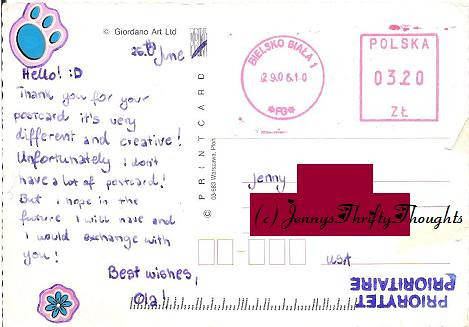 © Giordano Art Ltd
26.th June
Hello! :D
Thank you for your
postcard it's very
different and creative!
Unfortunately I don't
have a lot of postcard!
But I hope in the
future I will have and
I would exchange with
you!
Best wishes,
Ola!
PRINTCARD
03-683 Warszawa
BIELSKO BIAŁA 1
29.06.10
POLSKA
0320
ZŁ
Jenny
(c) JennysThriftyThoughts
USA
PRIORYTET
PRIORITAIRE